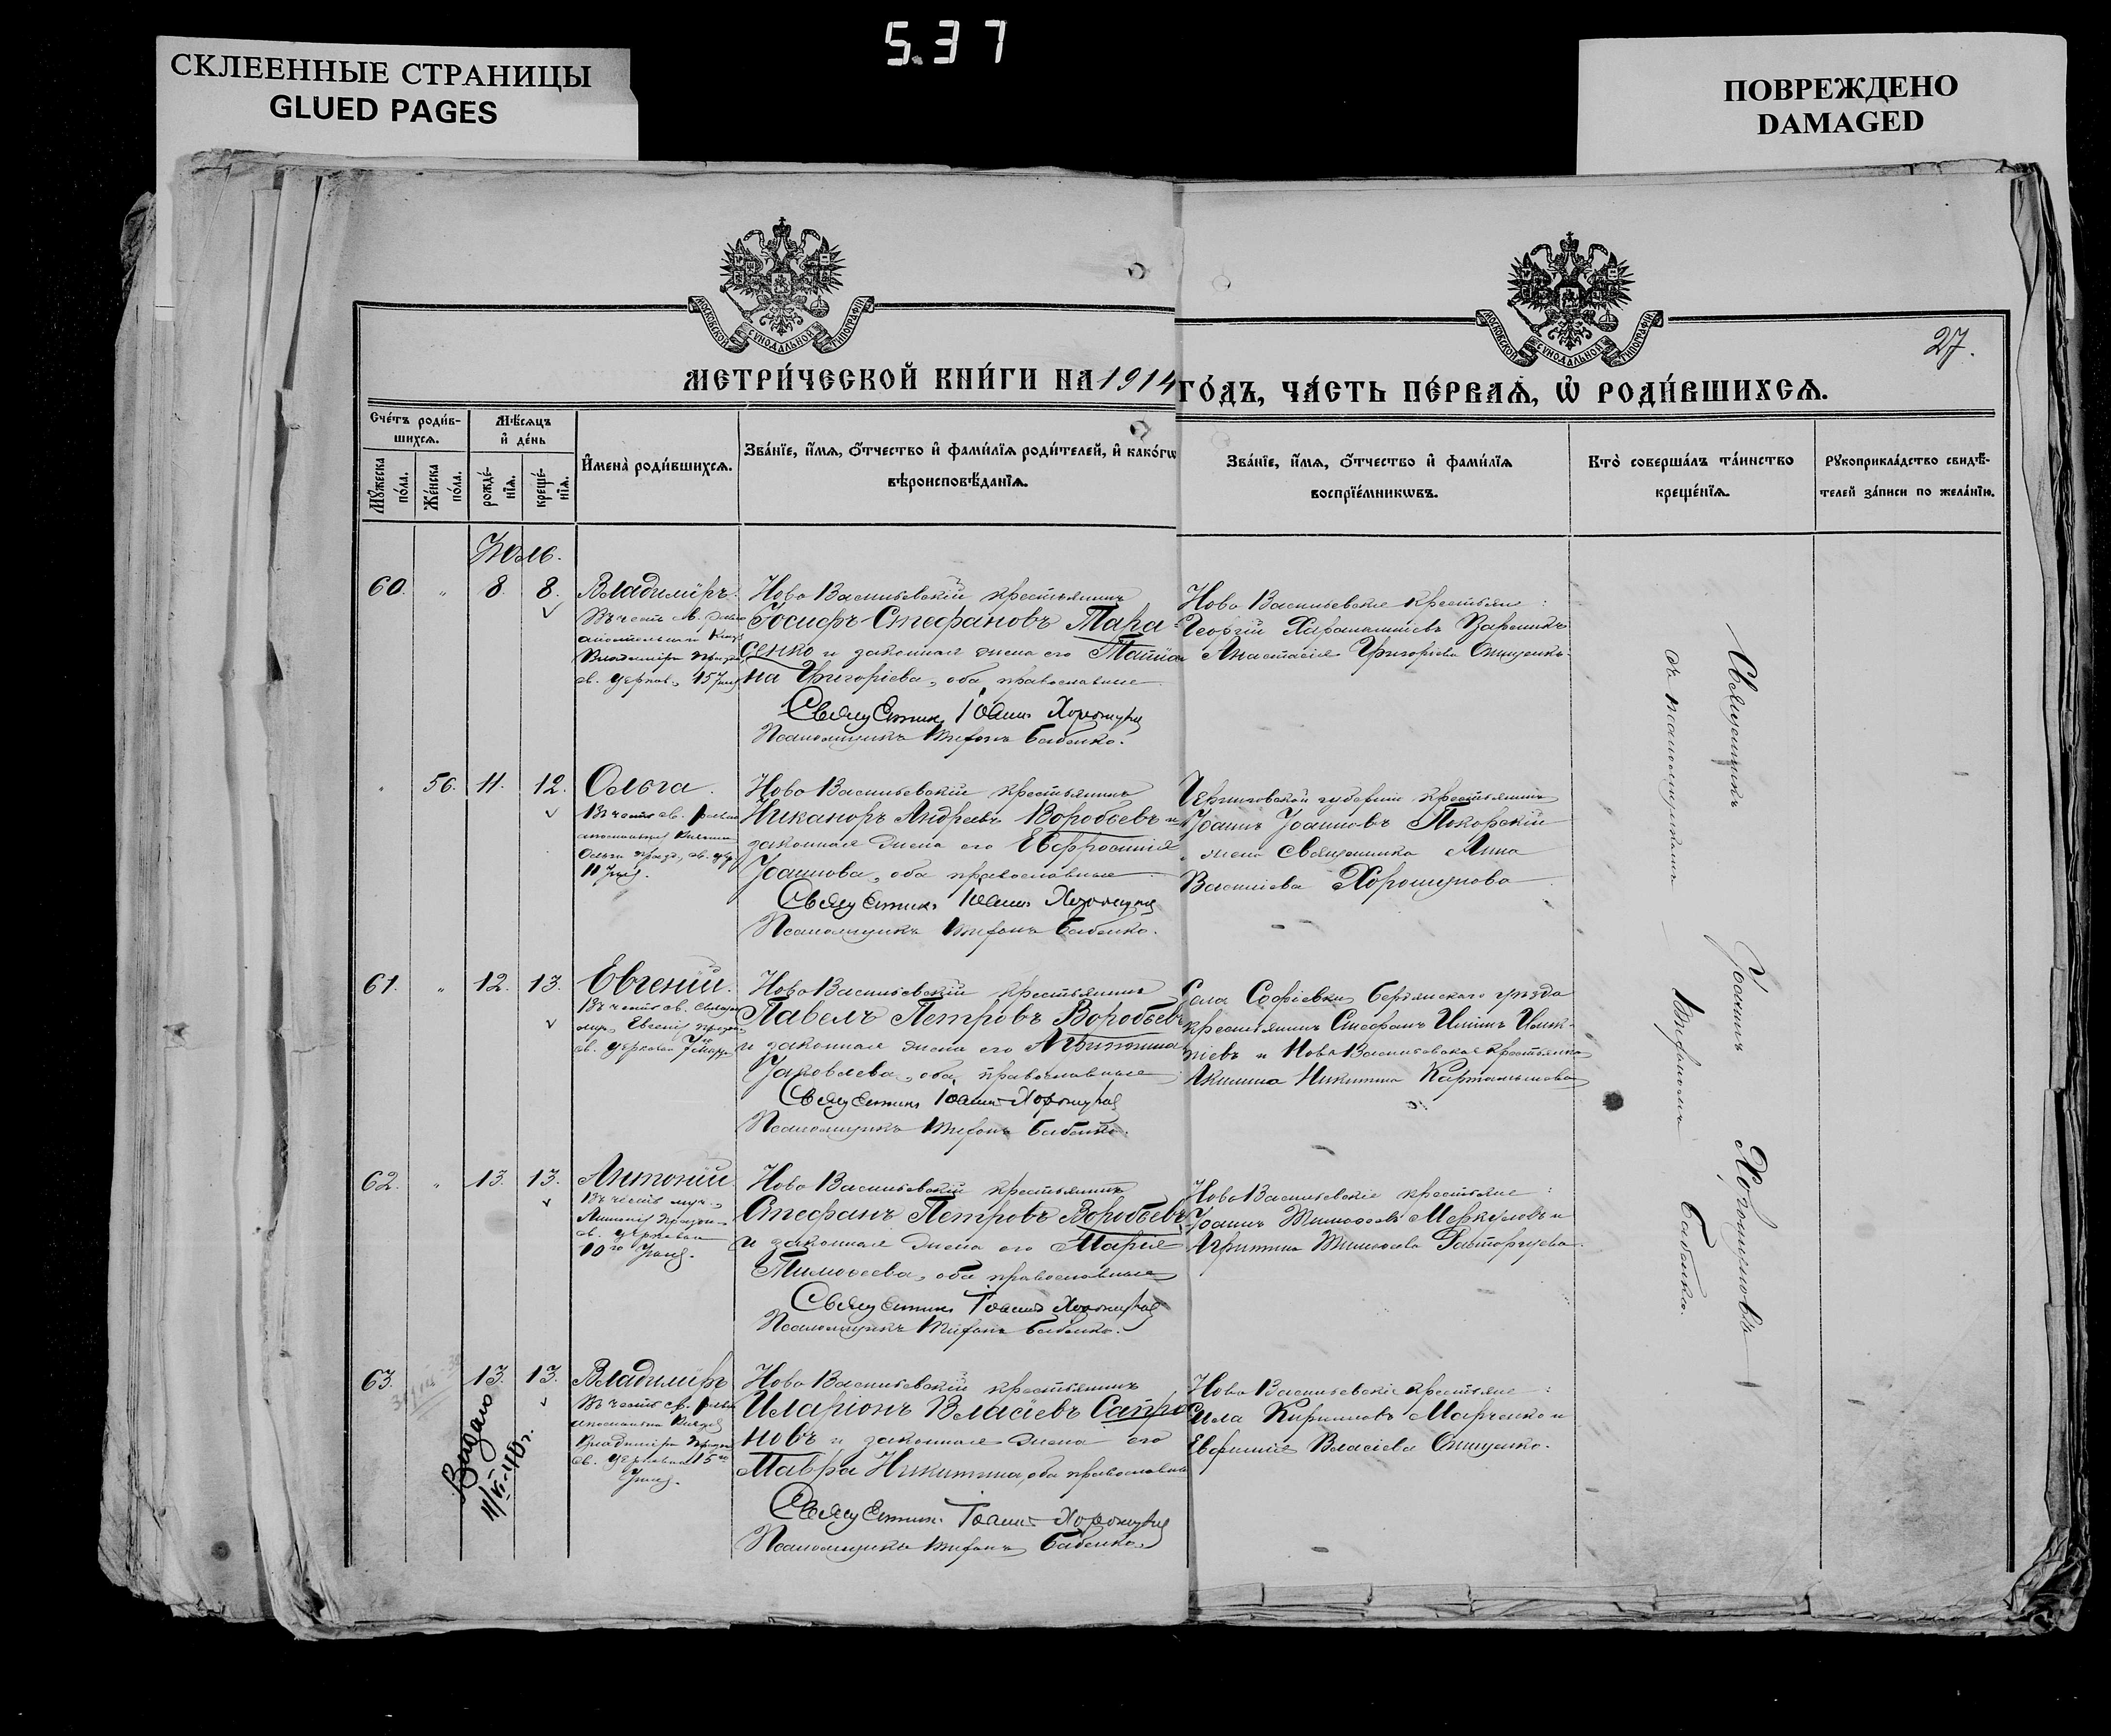 5.37
СКЛЕЕННЫЕ СТРАНИЦЫ
GLUED PAGES
ПОВРЕЖДЕНО
DAMAGED
МОСКОВСКОЙ СѴНОДАЛЬНОЙ ТИПОГРАФІИ
МОСКОВСКОЙ СѴНОДАЛЬНОЙ ТИПОГРАФІИ
27.
МЕТРИ́ЧЕСКОЙ КНИ́ГИ НА 1914 ГО́ДЪ, ЧА́СТЬ ПЕ́РВАѦ, Ѡ҆ РОДИ́ВШИХСѦ.
Сче́тъ роди́в-
шихсѧ.
Мꙋ́жеска по́ла.
Же́нска по́ла.
Мѣ́сѧцъ
и҆ де́нь
рожде́-
нїѧ.
креще́-
нїѧ.
И҆мена̀ роди́вшихсѧ.
Зва́нїе, и҆́мѧ, ѻ҆́тчество и҆ фами́лїѧ роди́телей, и҆ како́гѡ
вѣроисповѣ́данїѧ.
Зва́нїе, и҆́мѧ, ѻ҆́тчество и҆ фами́лїѧ
воспрїе́мникѡвъ.
Кто̀ соверша́лъ та́инство
креще́нїѧ.
Рꙋкоприкла́дство свидѣ́-
телей за́писи по жела́нїю.
Іюль.
60. „ 8. 8. Владиміръ.
Въ честь св. равно
апостольнаго Княз
Владиміра празд.
св. церков. 15 Іюля
Ново Васильевскій крестьянинъ
Іосифъ Стефановъ Тара=
сенко и законная жена его Татіа
на Григоріева, оба православные
Священникъ Іоаннъ Хорошунов
Псаломщикъ Трифонъ Бабенко.
Ново Васильевскіе крестьяне:
Георгій Харалампіевъ
Анастасія Григоріева Онищенко.
„ 56. 11. 12. Ольга.
Въ честь св. равно
апостольныя Княгини
Ольги празд. св. цер.
11 Іюля.
Ново Васильевскій крестьянинъ
Никаноръ Андреевъ Воробьевъ и
законная жена его Евфросинія
Іоаннова, оба православные
Священникъ Іоаннъ Хорошунов
Псаломщикъ Трифонъ Бабенко.
Черниговской губерніи крестьянинъ
Іоаннъ Іоанновъ Покорскій
и жена Священника Анна
Василіева Хорошунова
61. „ 12. 13. Евгеній.
Въ честь св. Священ
муч. Евгенія праздн.
св. церковью 7го Марта
Ново Васильевскій крестьянинъ
Павелъ Петровъ Воробьевъ
и законная жена его Агриппина
Іаковлева, оба православные
Священникъ Іоаннъ Хорошунов
Псаломщикъ Трифонъ Бабенко.
Села Софіевки Бердянскаго уѣзда
крестьянинъ Стефанъ Ильинъ
и Ново Васильевская крестьянка
Акилина Никитина Картамышева
62. „ 13. 13. Антоній.
Въ честь муч.
Антонія праздн.
св. церковью
10го Іюля.
Ново Васильевскій крестьянинъ
Стефанъ Петровъ Воробьевъ
и законная жена его Марія
Тимоѳеева, оба православные
Священникъ Іоаннъ Хорошунов
Псаломщикъ Трифонъ Бабенко.
Ново Васильевскіе крестьяне:
Іоаннъ Тимоѳеевъ Меркуловъ и
Агриппина Тимоѳеева Расторгуева.
63. 13. 13. Владиміръ
Въ честь св. равно
апостольна Князя
Владиміра праздн.
св. церковью 15го
Іюля.
Ново Васильевскій крестьянинъ
Иларіонъ Власіевъ Сапро
новъ и законная жена его
Мавра Никитина, оба православные
Священникъ Іоаннъ Хорошунов
Псаломщикъ Трифонъ Бабенко.
Ново Васильевскіе крестьяне:
Сила Кирилловъ Марченко и
Евфимія Власіева Онищенко.
Выдано
11/VI-40 г.
Священникъ Іоаннъ Хорошуновъ
съ псаломщикомъ Трифономъ Бабенко.